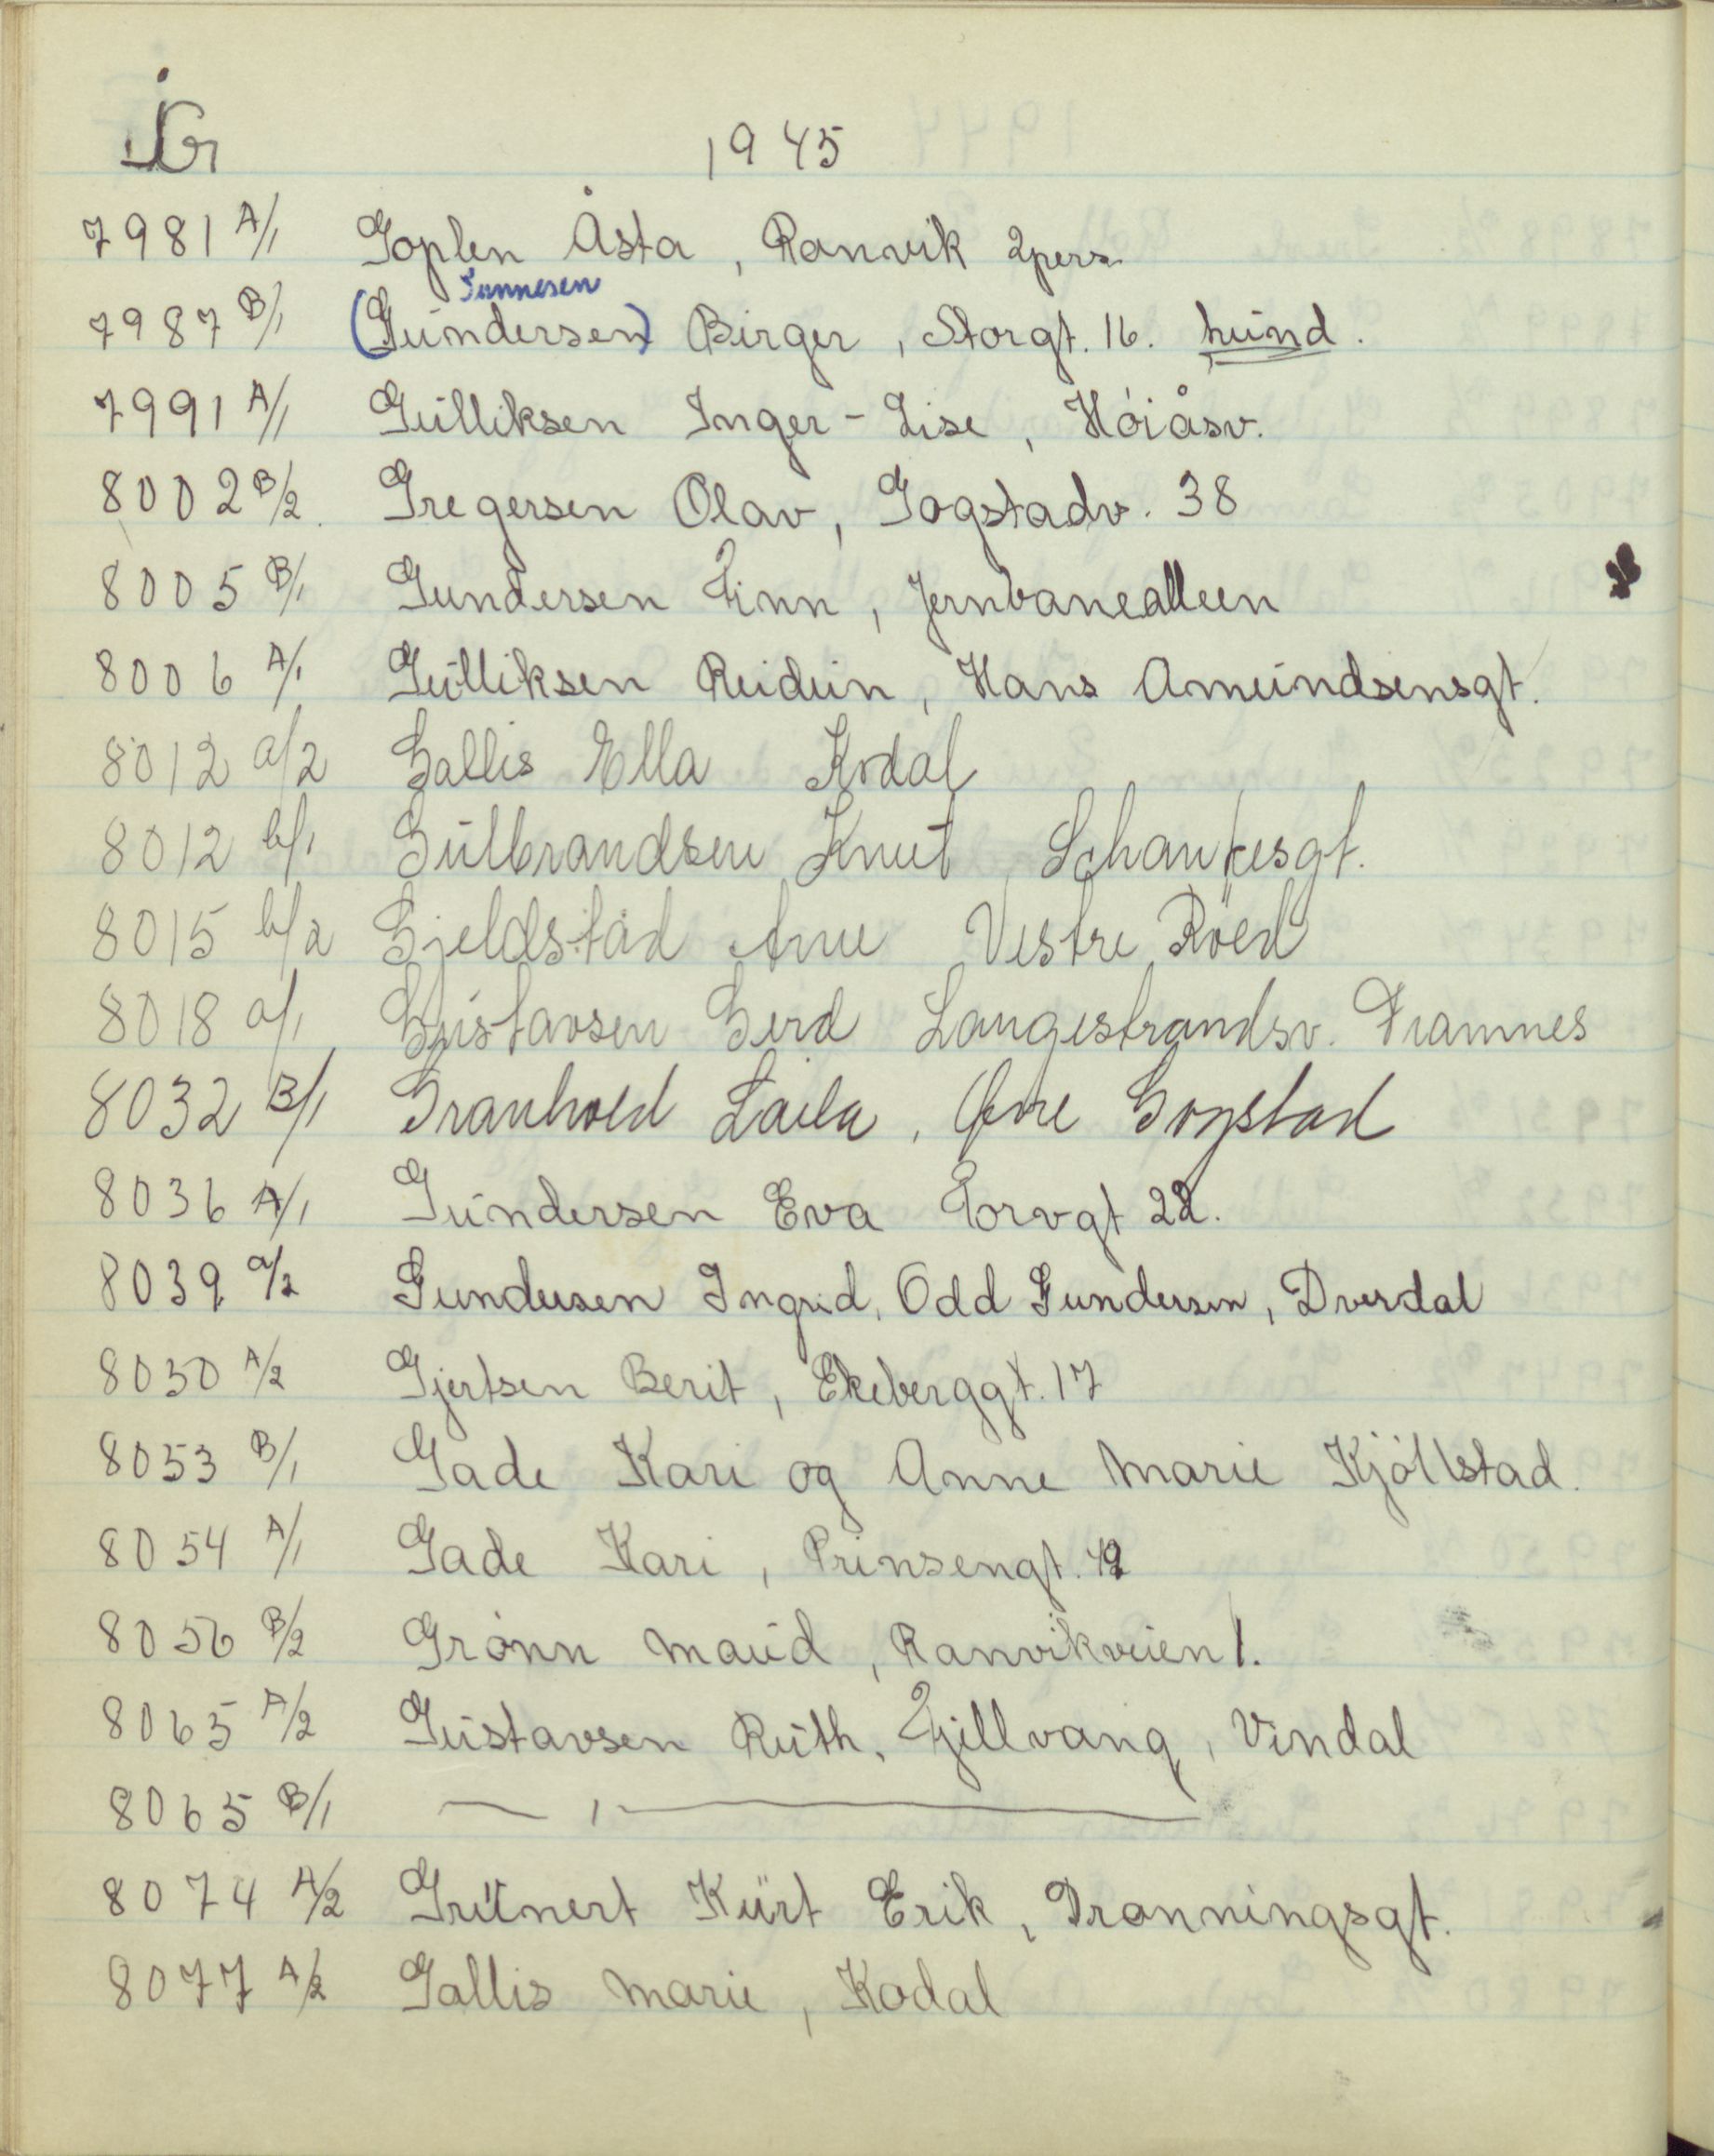 G
1945
7981 A/1 Goplen Åsta, Ranvik 2pers.
Tunnesen
7987 B/1 (Gundersen) Birger, Storgt. 16. hund.
7991 A/1 Gulliksen Inger-Lise, Höiåsv.
8002 B/2. Gregersen Olav, Gogstadv. 38
8005 B/1 Gundersen Finn, Jernbanealleen
8006 A/1 Gulliksen Reidun, Hans Amundsensgt.
8012 a/2 Gallis Ella Kodal
8012 b/1 Gulbrandsen Knut, Schankesgt.
8015 b/2 Gjeldstad Arne Vestre Röed
8018 a/1 Gustavsen Gerd Langestrandsv. Framnes
8032 B/1 Granhold Laila, Øvre Gogstad
8036 A/1 Gundersen Eva Torvgt 22.
8039 a/2 Gundersen Ingrid, Odd Gundersen, Dverdal
8050 A/2 Gjertsen Berit, Ekeberggt. 17
8053 B/1 Gade Kari og Anne Marie Kjöllstad.
8054 A/1 Gade Kari, Prinsengt. 12
8056 B/2 Grönn Maud, Ranvikveien 1.
8065 A/2 Gustavsen Ruth, Fjellvang, Vindal
8065 B/1 — , —
8074 A/2 Grünert Kurt Erik, Dronningsgt.
8077 A/2 Gallis Marie, Kodal